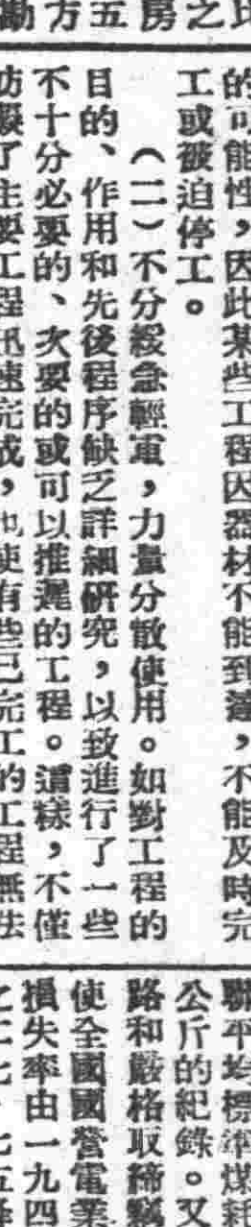 的可能性,因此某些工程因器材不能到達,不能及時完
工或被迫停工。
(二)不分緩急輕重,力量分散使用。如對工程的
目的、作用和先後程序缺乏詳細研究,以致進行了一些
不十分必要的、次要的或可以推遲的工程。這樣,不僅
妨礙了主要工程迅速完成,也使有些已完工的工程無法
公斤的紀錄。又
路和嚴格取締竊
使全國國營電業
損失率由一九四
之房五方勵